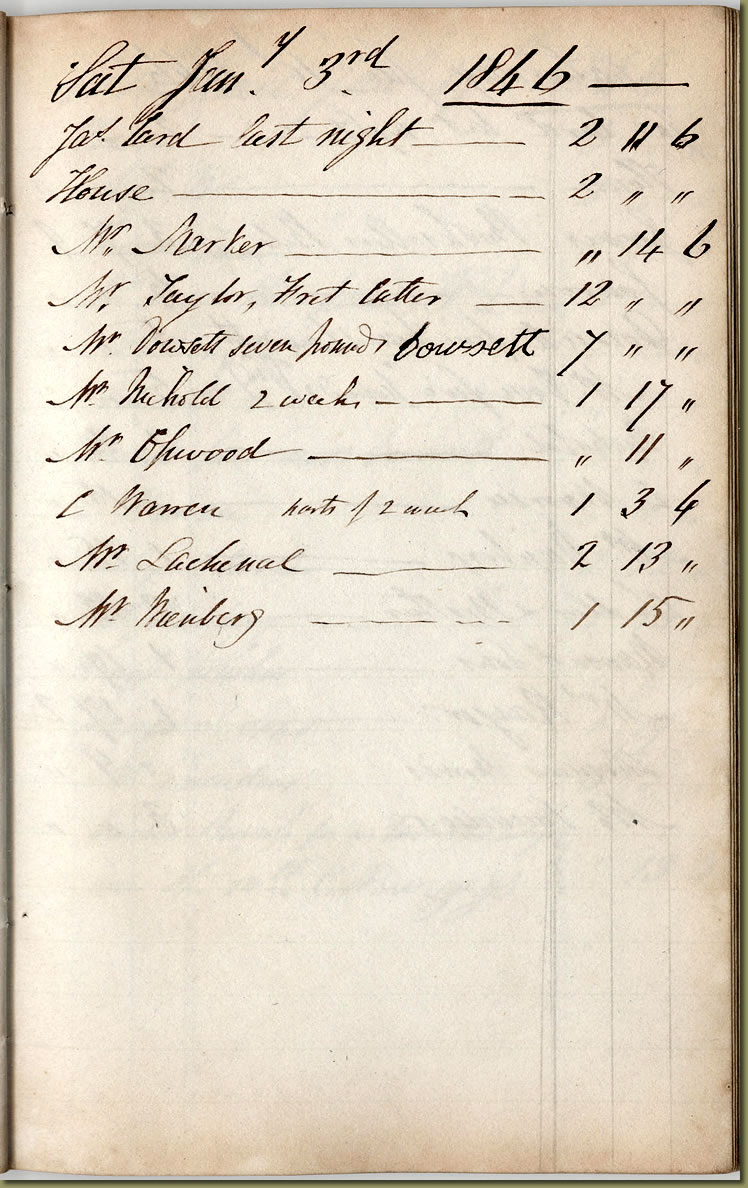 Sat Jany. 3rd. 1846 —
Jas. Card last night — 2 11 6
House — 2 " "
Mr. Marker — " 14 6
Mr. Taylor, Fret Cutter — 12 " "
Mr. Dowsett seven pounds Dowsett 7 " "
Mr. Nickold 2 weeks — 1 17 "
Mr. Upwood — " 11 "
C Warren parts of 2 week 1 3 6
Mr. Lachenal — 2 13 "
Mr. — 1 15 "